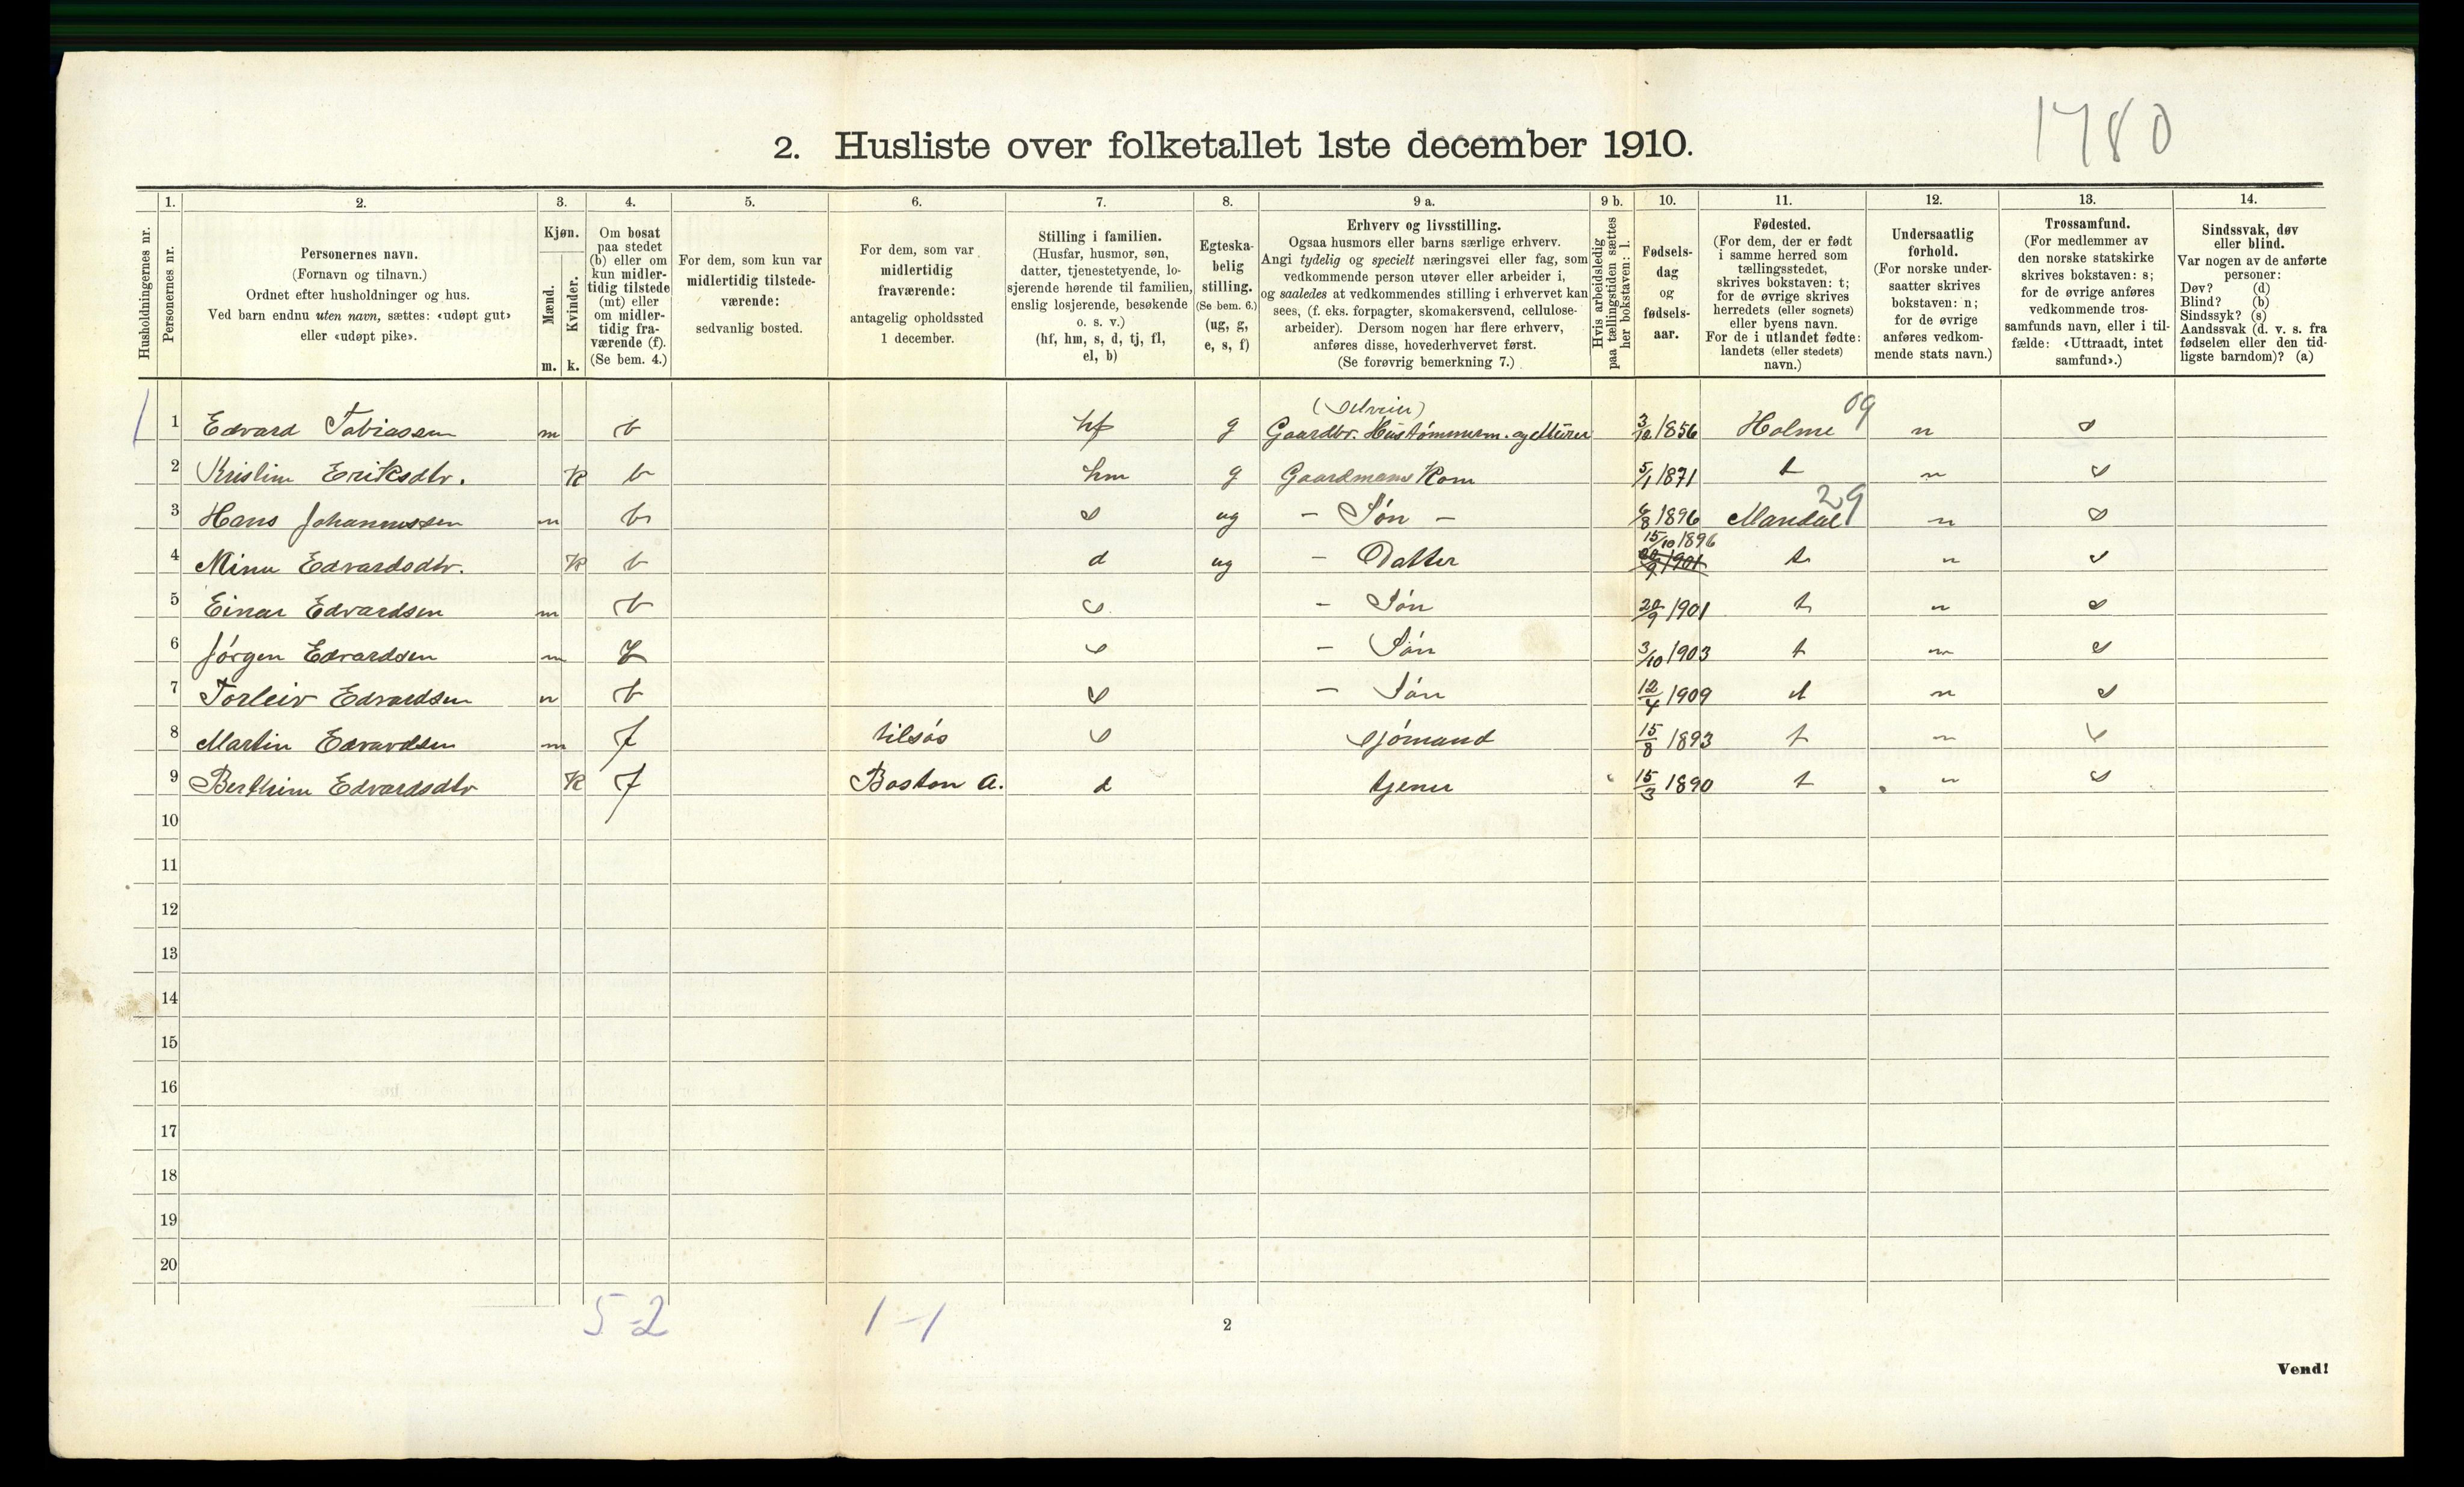 1780
2. Husliste over folketallet 1ste december 1910.
Husholdningernes nr.
1. 2. 3. 4. 5. 6. 7. 8. 9 a. 9 b. 10. 11. 12. 13. 14.
Personernes nr.
Personernes navn.
(Fornavn og tilnavn.)
Ordnet efter husholdninger og hus.
Ved barn endnu uten navn, sættes: «udøpt gut»
eller «udøpt pike».
Kjøn.
Mænd.
Kvinder.
m. k.
Om bosat
paa stedet
(b) eller om
kun midler-
tidig tilstede
(mt) eller
om midler-
tidig fra-
værende (f).
(Se bem. 4.)
For dem, som kun var
midlertidig tilstede-
værende:
sedvanlig bosted.
For dem, som var
midlertidig
fraværende:
antagelig opholdssted
1 december.
Stilling i familien.
(Husfar, husmor, søn,
datter, tjenestetyende, lo-
sjerende hørende til familien,
enslig losjerende, besøkende
o. s. v.)
(hf, hm, s, d, tj, fl,
el, b)
Egteska-
belig
stilling.
(Se bem. 6.)
(ug, g,
e, s, f)
Erhverv og livsstilling.
Ogsaa husmors eller barns særlige erhverv.
Angi tydelig og specielt næringsvei eller fag, som
vedkommende person utøver eller arbeider i,
og saaledes at vedkommendes stilling i erhvervet kan
sees, (f. eks. forpagter, skomakersvend, cellulose-
arbeider). Dersom nogen har flere erhverv,
anføres disse, hovederhvervet først.
(Se forøvrig bemerkning 7.)
Hvis arbeidsledig
paa tællingstiden sættes
her bokstaven: l.
Fødsels-
dag
og
fødsels-
aar.
Fødested.
(For dem, der er født
i samme herred som
tællingsstedet,
skrives bokstaven: t;
for de øvrige skrives
herredets (eller sognets)
eller byens navn.
For de i utlandet fødte:
landets (eller stedets)
navn.)
Undersaatlig
forhold.
(For norske under-
saatter skrives
bokstaven: n;
for de øvrige
anføres vedkom-
mende stats navn.)
Trossamfund.
(For medlemmer av
den norske statskirke
skrives bokstaven: s;
for de øvrige anføres
vedkommende tros-
samfunds navn, eller i til-
fælde: «Uttraadt, intet
samfund».)
Sindssvak, døv
eller blind.
Var nogen av de anførte
personer:
Døv? (d)
Blind? (b)
Sindssyk? (s)
Aandssvak (d. v. s. fra
fødselen eller den tid-
ligste barndom)? (a)
(Selveier) 09
1 1 Edvard Tobiassen m b hf g Gaardbr. Hustømmerm. og Murer 3/12 1856 Holme n s
2 Kristine Eriksdtr. K b hm g Gaardmans Kone 5/1 1871 t n s
29
3 Hans Johannessen m b s ug - Søn - 6/8 1896 Mandal n s
15/10 1896
4 Mina Edvardsdtr. K b d ug - Datter 20/9 1901 t n s
5 Einar Edvardsen m b s - Søn 20/9 1901 t n s
6 Jørgen Edvardsen m b s - Søn 3/10 1903 t n s
7 Torleiv Edvardsen m b s - Søn 12/4 1909 t n s
8 Martin Edvardsen m f tilsøs s sjømand 15/8 1893 t n s
9 Berthine Edvardsdtr K f Boston A. d tjener 15/3 1890 t n s
10
11
12
13
14
15
16
17
18
19
20
5-2 1-1
2
Vend!